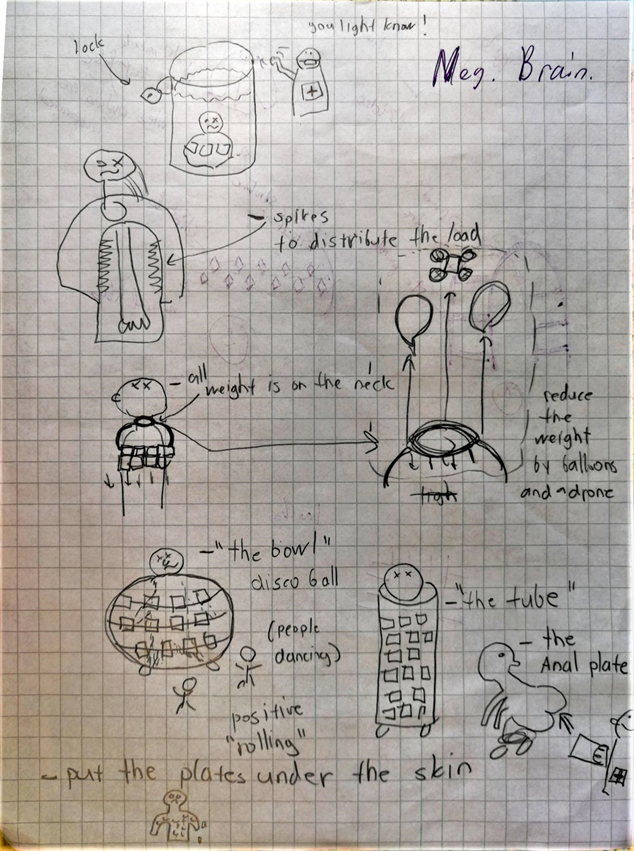 you light know!
lock
Meg. Brain.
- spikes
to distribute the load
- all
weight is on the neck
reduce
the
weight
by balloons
and a drone
- "the bowl"
disco ball
(people
dancing)
positive
"rolling"
- "the tube"
- the
Anal plate
- put the plates under the skin